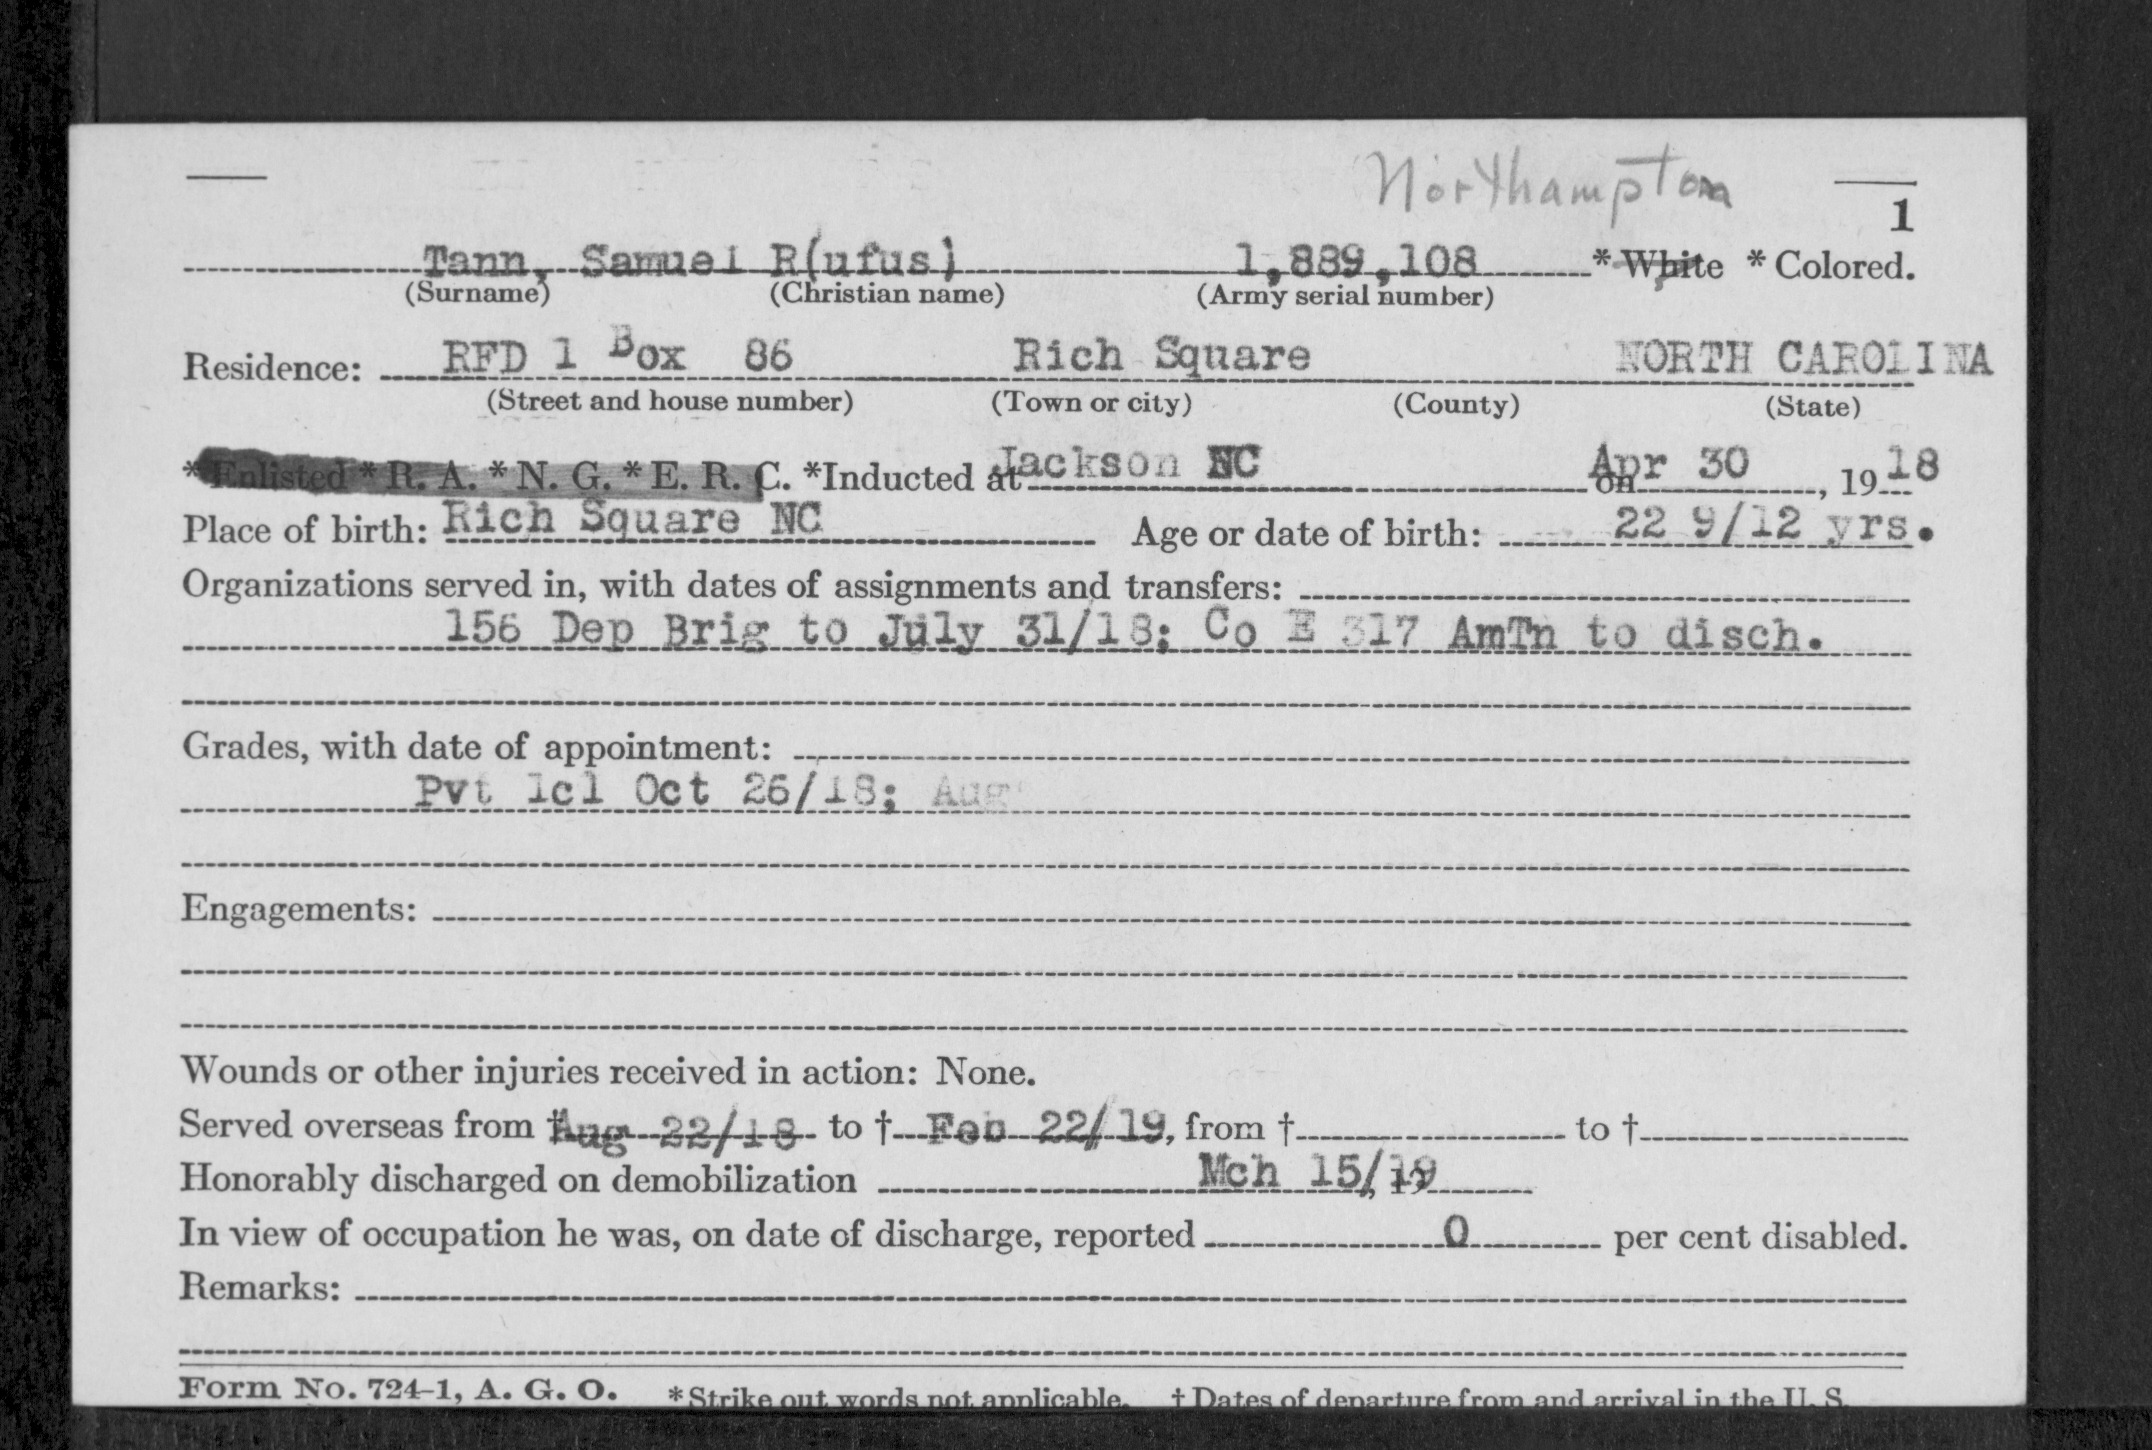 Northampton
1
Tann, Samuel R(ufus) 1,889,108 * White * Colored.
(Surname) (Christian name) (Army serial number)
Residence: RFD 1 Box 86 Rich Square NORTH CAROLINA
(Street and house number) (Town or city) (County) (State)
*Enlisted *R. A. *N. G. *E. R. C. *Inducted at Jackson NC on Apr 30, 1918
Place of birth: Rich Square NC Age or date of birth: 22 9/12 yrs.
Organizations served in, with dates of assignments and transfers:
156 Dep Brig to July 31/18; Co E 317 AmTn to disch.
Grades, with date of appointment:
Pvt 1cl Oct 26/18; Aug
Engagements:
Wounds or other injuries received in action: None.
Served overseas from † Aug 22/18 to † Feb 22/19, from † to †
Honorably discharged on demobilization Mch 15/19, 19
In view of occupation he was, on date of discharge, reported 0 per cent disabled.
Remarks:
Form No. 724-1, A. G. O. *Strike out words not applicable. † Dates of departure from and arrival in the U. S.